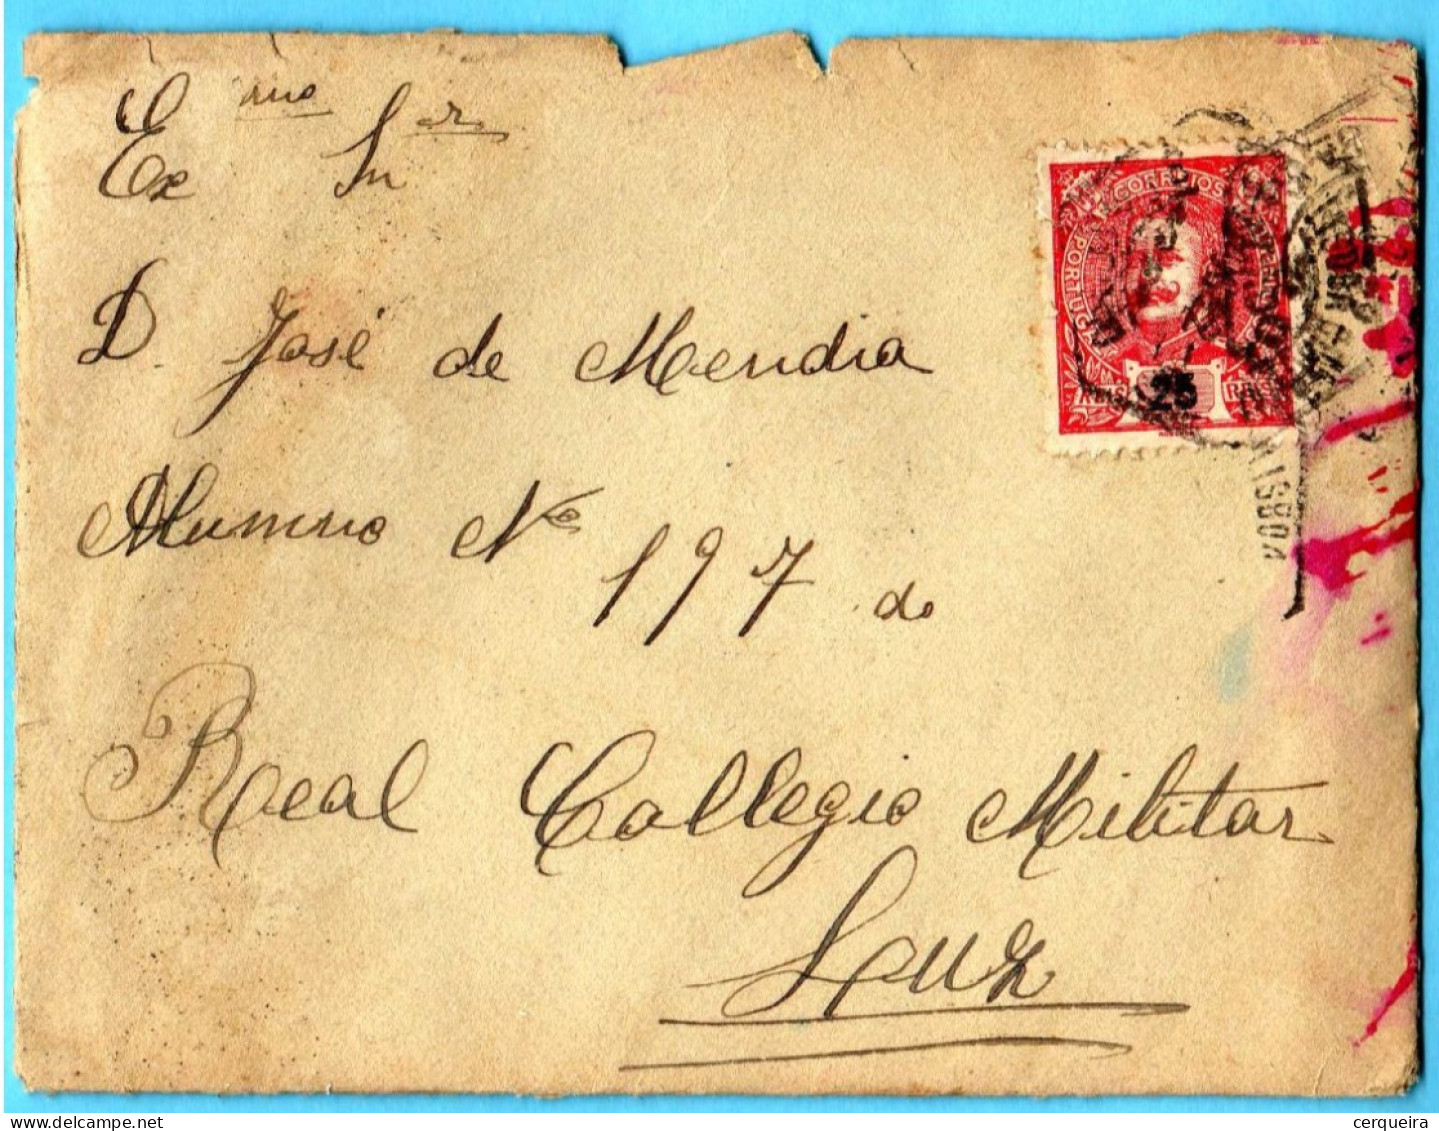 Ex.mo Sn.r
D. José de Mendia
Alumno No 197 do
Real Collegio Militar
Luz
CORREIOS
PORTUGAL
25
REIS
LISBOA
cerqueira